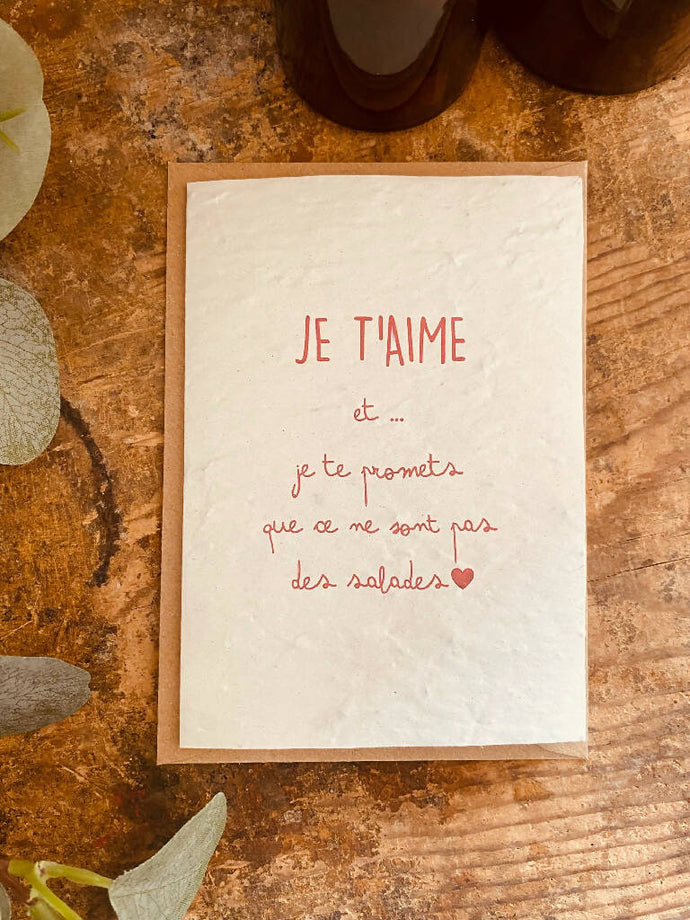 JE T'AIME
et ...
je te promets
que ce ne sont pas
des salades♥